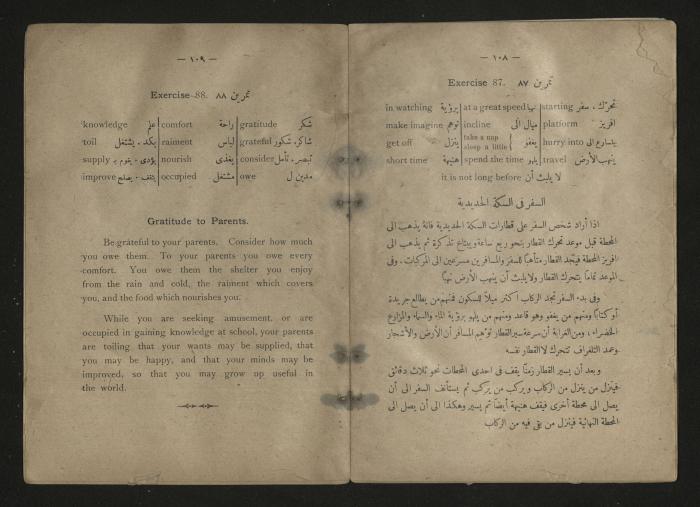 — ١٠٨ —
Exercise 87. تمرين ٨٧
in watching برؤية at a great speed نهبا starting تحرك . سفر
make imagine توهم incline ميال الى platform افريز
get off ينزل take a nap sleep a little يغفو hurry into يتسارع الى
short time هنيهة spend the time يلهو travel ينهب الأرض
it is not long before لا يلبث أن
السفر فى السكة الحديدية
اذا أراد شخص السفر على قطارات السكة الحديدية فانه يذهب الى
المحطة قبل موعد تحرك القطار بنحو ربع ساعة ويبتاع تذكرة ثم يذهب الى
افريز المحطة فيجد القطار متأهبًا للسفر والمسافرين مسرعين الى المركبات . وفى
الموعد تمامًا يتحرك القطار ولا يلبث أن ينهب الأرض نهبًا
وفى بدء السفر تجد الركاب أكثر ميلاً للسكون فمنهم من يطالع جريدة
أو كتابًا ومنهم من يغفو وهو قاعد ومنهم من يلهو برؤية الماء والسماء والمزارع
الخضراء . ومن الغرابة أن سرعة سير القطار توهم المسافر أن الأرض والأشجار
وعمد التلغراف تتحرك لا القطار نفسه
وبعد أن يسير القطار زمنًا يقف فى احدى المحطات نحو ثلاث دقائق
فينزل من ينزل من الركاب ويركب من يركب ثم يستأنف السفر الى أن
يصل الى محطة أخرى فيقف هنيهة أيضًا ثم يسير وهكذا الى أن يصل الى
المحطة النهائية فينزل من بقى فيه من الركاب
— ١٠٩ —
Exercise 88. تمرين ٨٨
knowledge علم comfort راحة gratitude شكر
toil يكد . يشتغل raiment لباس grateful شاكر . شكور
supply يؤدى . يقوم ب nourish يغذى consider تبصر . تأمل
improve يثقف . يصلح occupied مشتغل owe مدين ل
Gratitude to Parents.
Be grateful to your parents. Consider how much
you owe them. To your parents you owe every
comfort. You owe them the shelter you enjoy
from the rain and cold, the raiment which covers
you, and the food which nourishes you.
While you are seeking amusement, or are
occupied in gaining knowledge at school, your parents
are toiling that your wants may be supplied, that
you may be happy, and that your minds may be
improved, so that you may grow up useful in
the world.